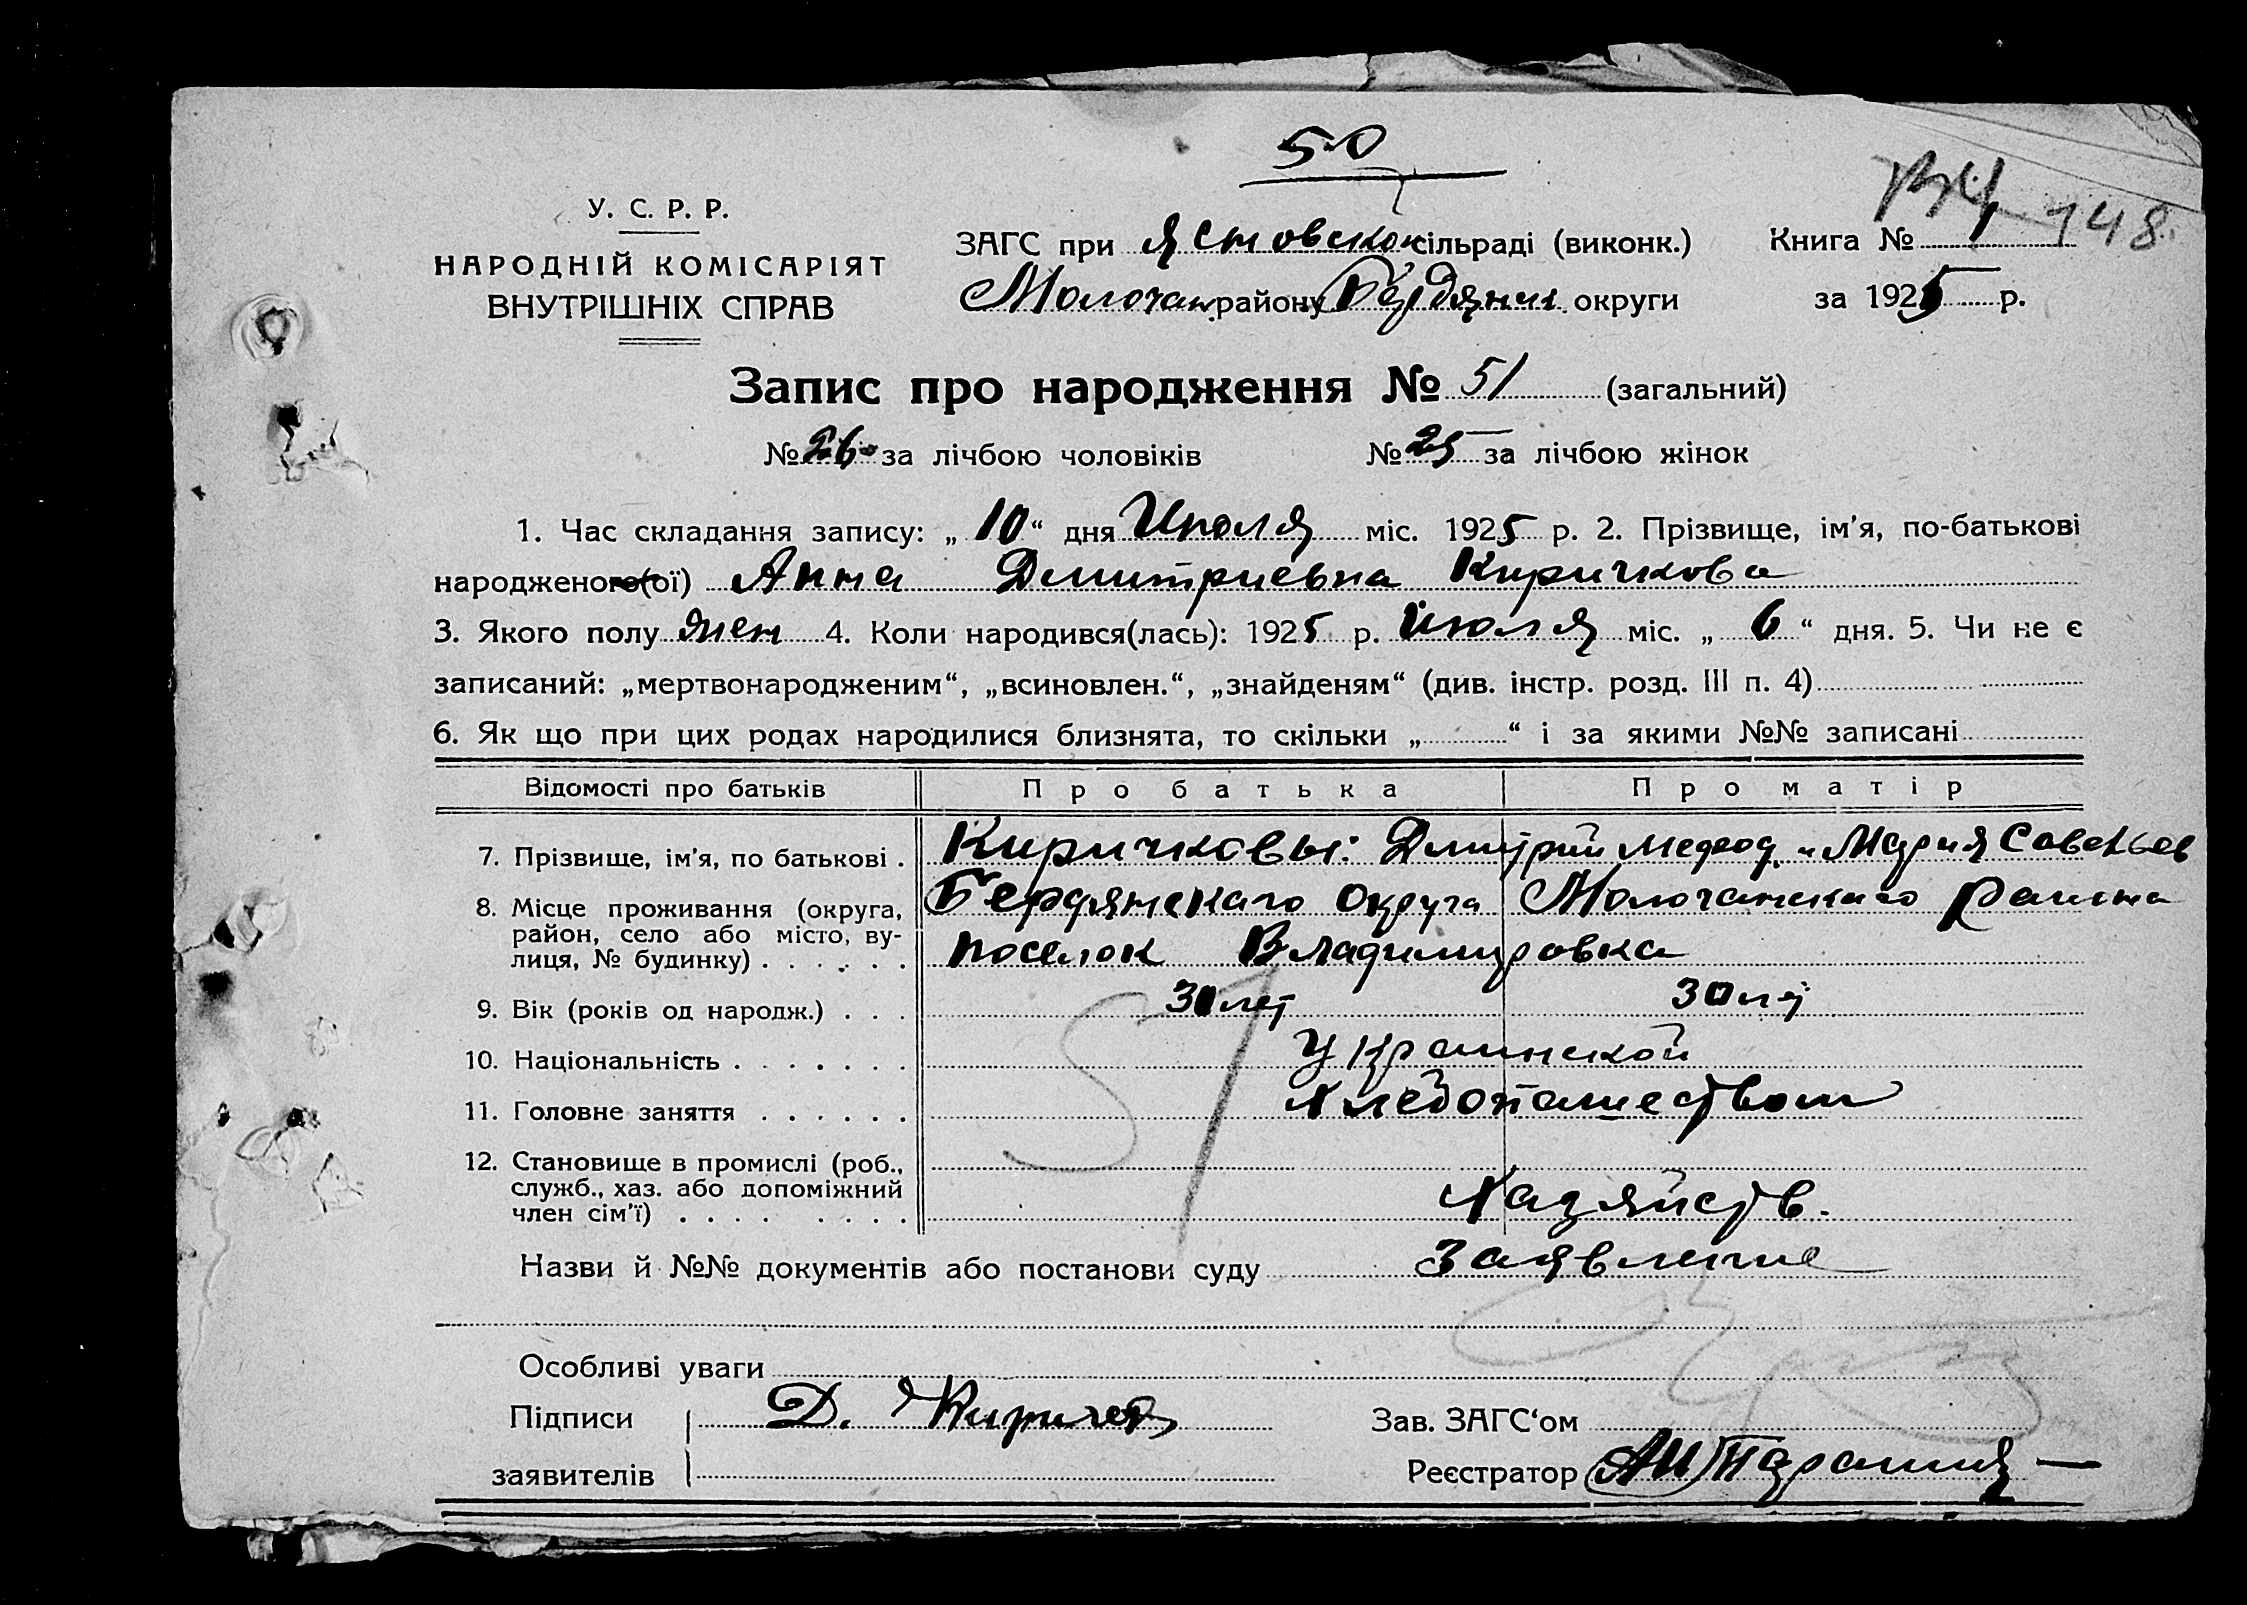 50
148.
У. С. Р. Р.
НАРОДНІЙ КОМІСАРІЯТ
ВНУТРІШНІХ СПРАВ
ЗАГС при Ястовской сільраді (виконк.)
Молочан. району Бердянск. округи
Книга № 1
за 1925 р.
Запис про народження № 51 (загальний)
№ 26 за лічбою чоловіків № 25 за лічбою жінок
1. Час складання запису: „ 10 “ дня Июоля міс. 1925 р. 2. Прізвище, ім'я, по-батькові
народженого(ої) Анна Дмитриевна Киричкова
3. Якого полу жен 4. Коли народився(лась): 1925 р. Июоля міс. „ 6 “ дня. 5. Чи не є
записаний: „мертвонародженим“, „всиновлен.“, „знайденям“ (див. інстр. розд. III п. 4)
6. Як що при цих родах народилися близнята, то скільки „ “ і за якими №№ записані
Відомості про батьків Про батька Про матір
7. Прізвище, ім'я, по батькові . Киричковы: Дмитрий Мефод. и Мария Савельев
8. Місце проживання (округа, Бердянскаго Округа Молочанскаго Раиона
район, село або місто, ву-
лиця, № будинку) . . . . . . поселок Владимировка
9. Вік (років од народж.) . . . 30 лет 30 лет
10. Національність . . . . . . . Украинской
11. Головне заняття . . . . . . Хлебопашеством
12. Становище в промислі (роб.,
служб., хаз. або допоміжний
член сім'ї) . . . . . . . . Хазяйств.
51
Назви й №№ документів або постанови суду Заявление
Особливі уваги
Підписи Д. Киричков
заявителів
Зав. ЗАГС‘ом
Реєстратор